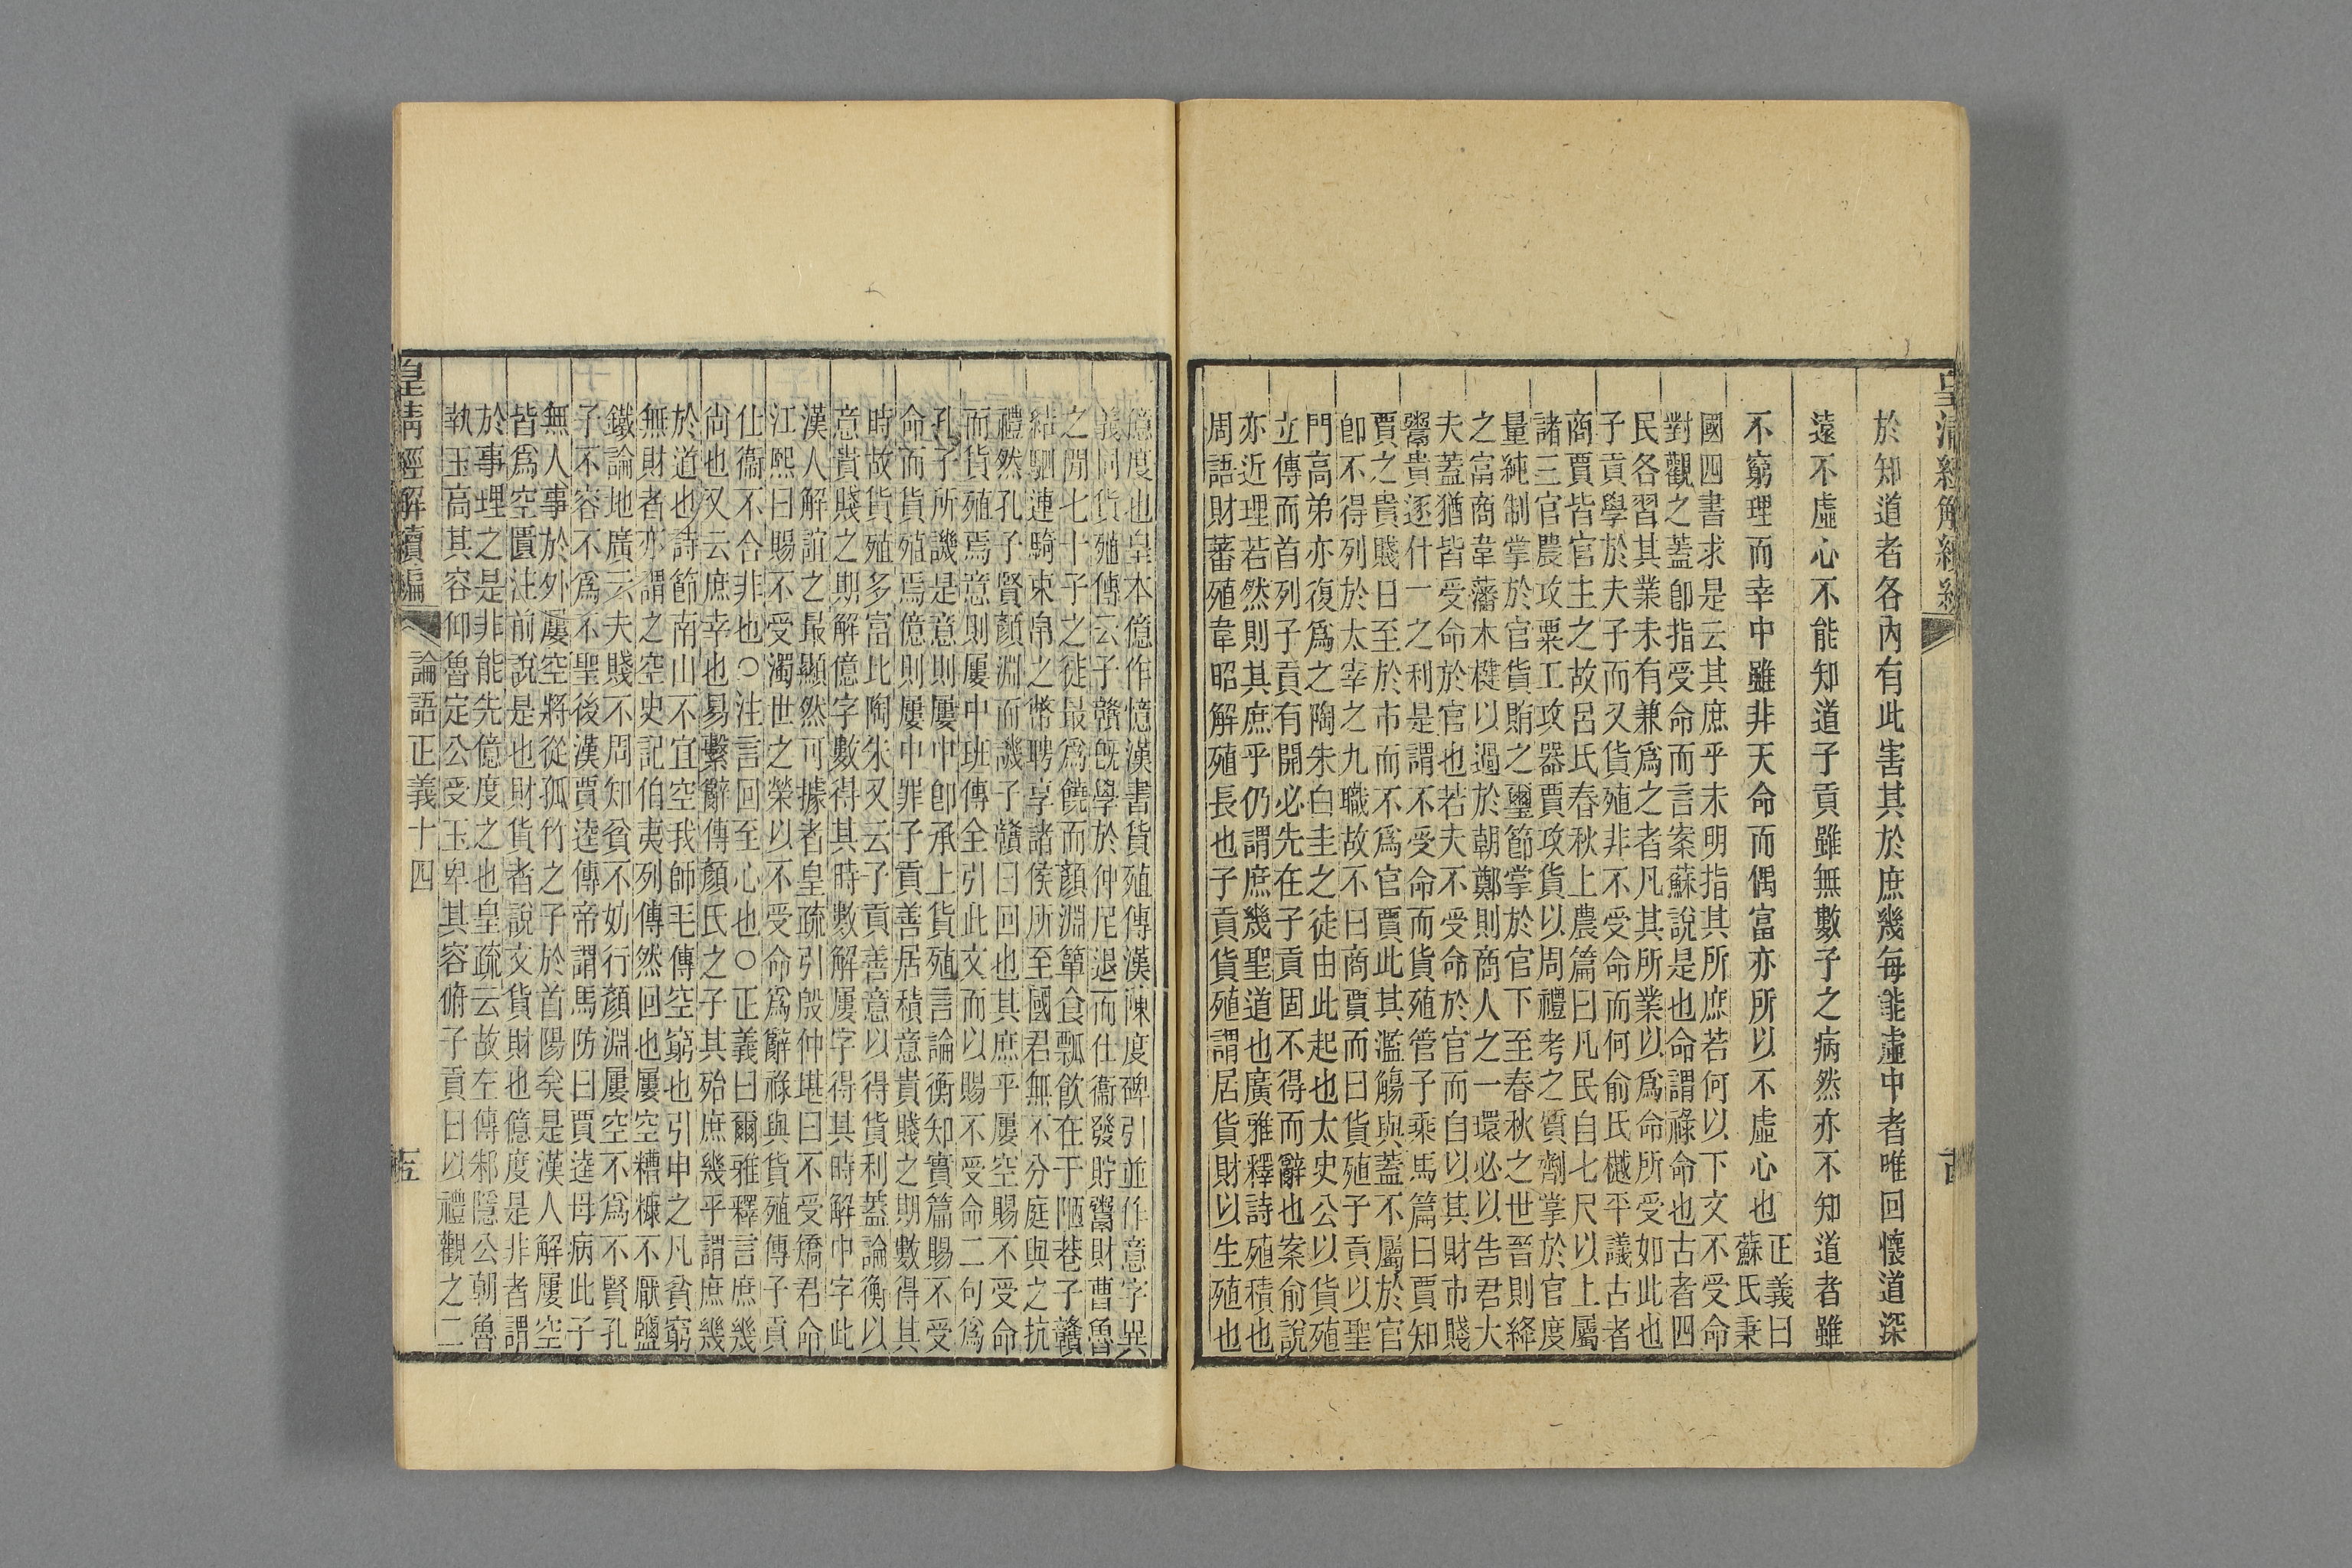 於知道者各內有此害其於庶幾每能虛中者唯回懷道深
遠不虛心不能知道子貢雖無數子之病然亦不知道者雖
不窮理而幸中雖非天命而偶富亦所以不虛心也
正義曰
蘇氏秉
國四書求是云其庶乎未明指其所庶若何以下文不受命
對觀之蓋卽指受命而言案蘇說是也命謂祿命也古者四
民各習其業未有兼爲之者凡其所業以爲命所受如此也
子貢學於夫子而又貨殖非不受命而何俞氏樾平議古者
商賈皆官主之故呂氏春秋上農篇曰凡民自七尺以上屬
諸三官農攻粟工攻器賈攻貨以周禮考之質劑掌於官度
量純制掌於官貨賄之璽節掌於官下至春秋之世晉則絳
之富商韋藩木楗以過於朝鄭則商人之一環必以告君大
夫蓋猶皆受命於官也若夫不受命於官而自以其財市賤
鬻貴逐什一之利是謂不受命而貨殖管子乘馬篇曰賈知
賈之貴賤日至於市而不爲官賈此其濫觴與蓋不屬於官
卽不得列於太宰之九職故不曰商賈而曰貨殖子貢以聖
門高弟亦復爲之陶朱白圭之徒由此起也太史公以貨殖
立傳而首列子貢有開必先在子貢固不得而辭也案俞說
亦近理若然則其庶乎仍謂庶幾聖道也廣雅釋詩殖積也
周語財蕃殖韋昭解殖長也子貢貨殖謂居貨財以生殖也
億度也皇本億作憶漢書貨殖傳漢陳度碑引並作意字異
義同貨殖傳云子贛旣學於仲尼退而仕衞發貯鬻財曹魯
之閒七十子之徒最爲饒而顏淵簞食瓢飮在于陋巷子贛
結駟連騎束帛之幣聘享諸侯所至國君無不分庭與之抗
禮然孔子賢顏淵而譏子贛曰回也其庶乎屢空賜不受命
而貨殖焉意則屢中班傳全引此文而以賜不受命二句爲
孔子所譏是意則屢中卽承上貨殖言論衡知實篇賜不受
命而貨殖焉億則屢中罪子貢善居積意貴賤之期數得其
時故貨殖多富比陶朱又云子貢善意以得貨利蓋論衡以
意貴賤之期解億字數得其時數解屢字得其時解中字此
漢人解誼之最顯然可據者皇疏引殷仲堪曰不受矯君命
江熙曰賜不受濁世之榮以不受命爲辭祿與貨殖傳子貢
仕衞不合非也○注言回至心也○正義曰爾雅釋言庶幾
尙也又云庶幸也易繫辭傳顏氏之子其殆庶幾乎謂庶幾
於道也詩節南山不宜空我師毛傳空窮也引申之凡貧窮
無財者亦謂之空史記伯夷列傳然回也屢空糟糠不厭鹽
鐵論地廣云夫賤不周知貧不妨行顏淵屢空不爲不賢孔
子不容不爲不聖後漢賈逵傳帝謂馬防曰賈逵母病此子
無人事於外屢空將從孤竹之子於首陽矣是漢人解屢空
皆爲空匱注前說是也財貨者說文貨財也億度是非者謂
於事理之是非能先億度之也皇疏云故左傳邾隱公朝魯
執玉高其容仰魯定公受玉卑其容俯子貢曰以禮觀之二
皇淸經解續編
論語正義十四